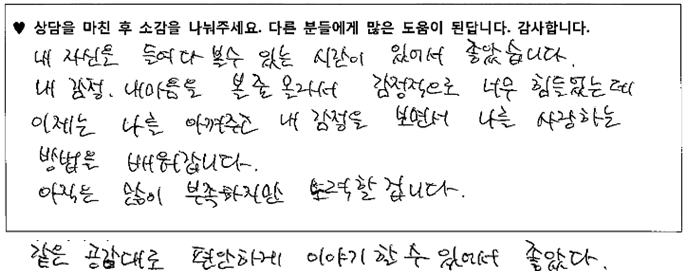 ♥ 상담을 마친 후 소감을 나눠주세요. 다른 분들에게 많은 도움이 된답니다. 감사합니다.
내 자신을 들여다 볼수 있는 시간이 있어서 좋았습니다.
내 감정. 내마음을 볼줄 몰라서 감정적으로 너무 힘들었는데
이제는 나를 아껴주고 내 감정을 보면서 나를 사랑하는
방법을 배워갑니다.
아직은 많이 부족하지만 노력할 겁니다.
같은 공감대로 편안하게 이야기 할 수 있어서 좋았다.